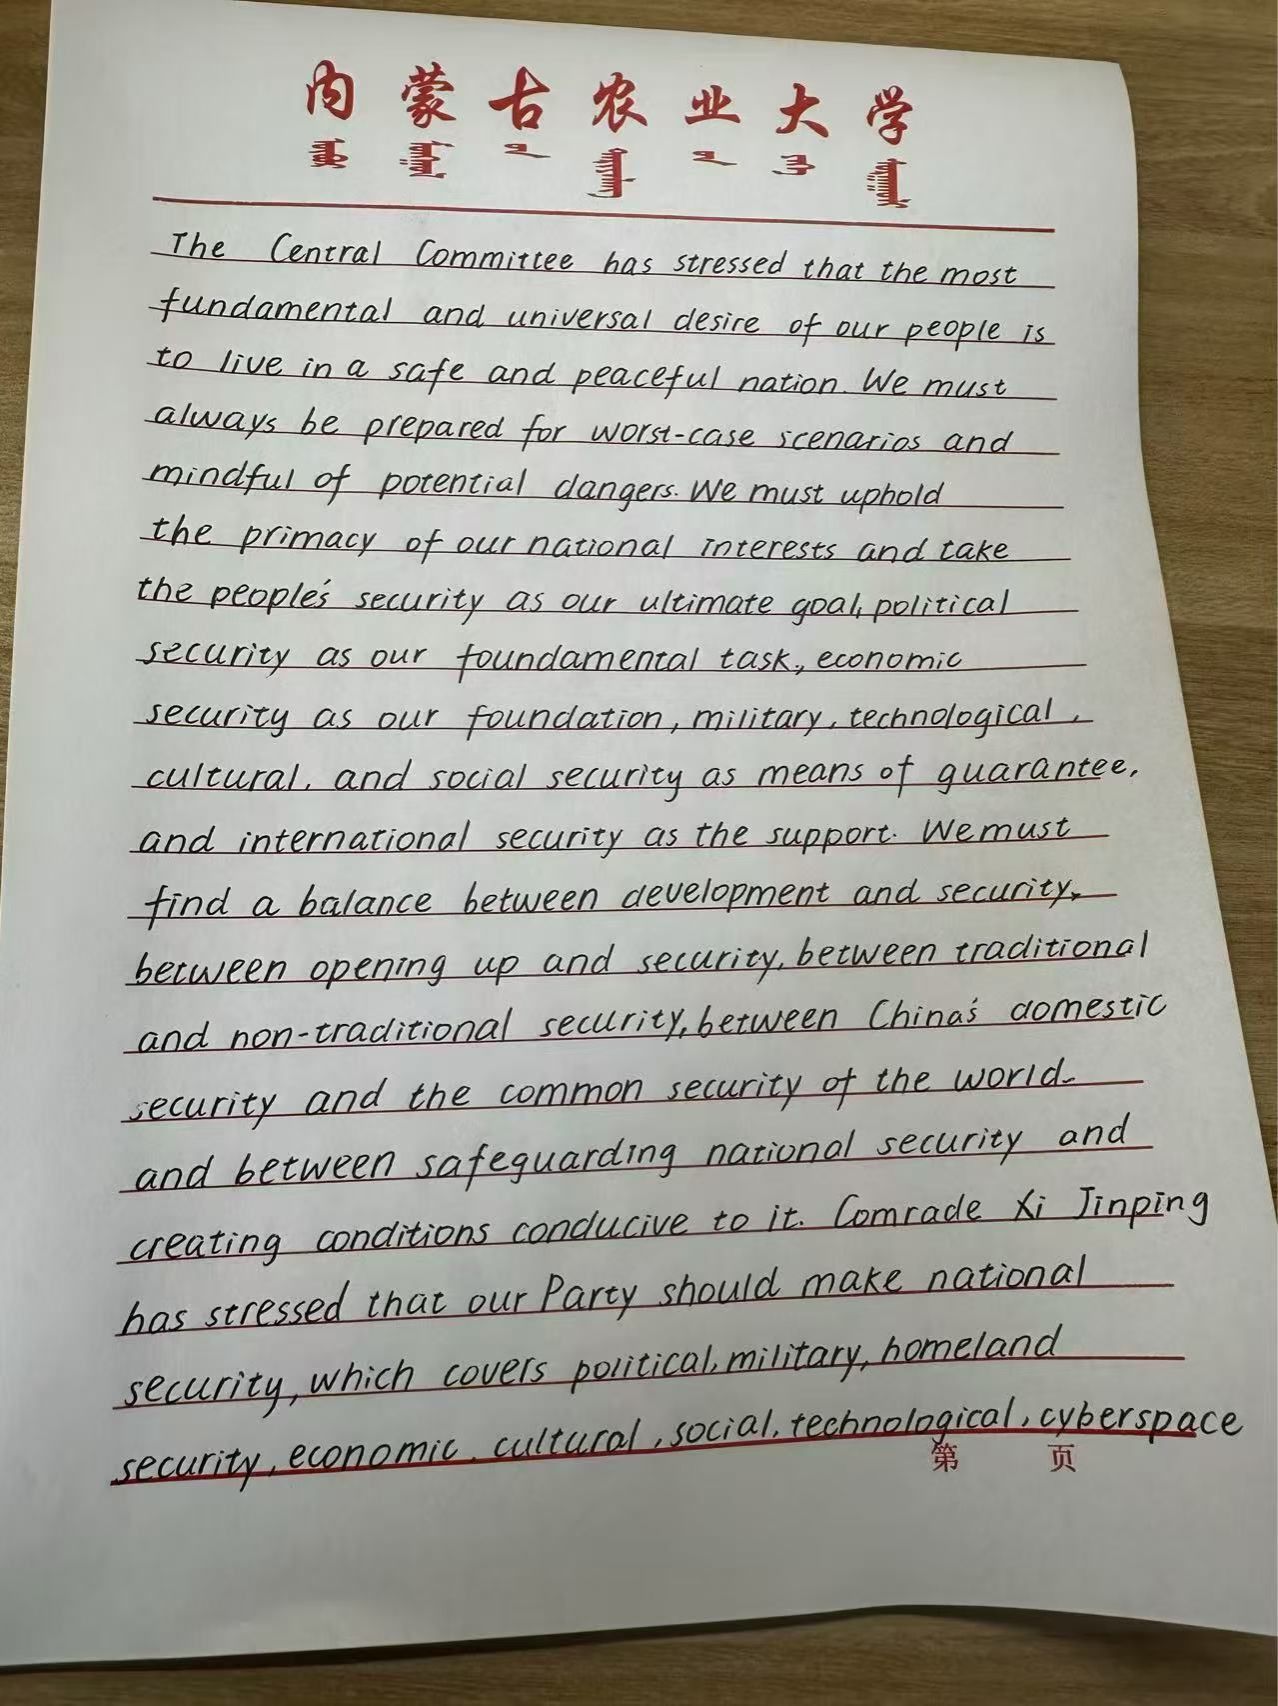 内蒙古农业大学
The Central Committee has stressed that the most
fundamental and universal desire of our people is
to live in a safe and peaceful nation. We must
always be prepared for worst-case scenarios and
mindful of potential dangers. We must uphold
the primacy of our national interests and take
the people's security as our ultimate goal, political
security as our foundamental task, economic
security as our foundation, military, technological,
cultural, and social security as means of guarantee,
and international security as the support. We must
find a balance between development and security,
between opening up and security, between traditional
and non-traditional security, between China's domestic
security and the common security of the world
and between safeguarding national security and
creating conditions conducive to it. Comrade Xi Jinping
has stressed that our Party should make national
security, which covers political, military, homeland
security, economic, cultural, social, technological, cyberspace
第 页